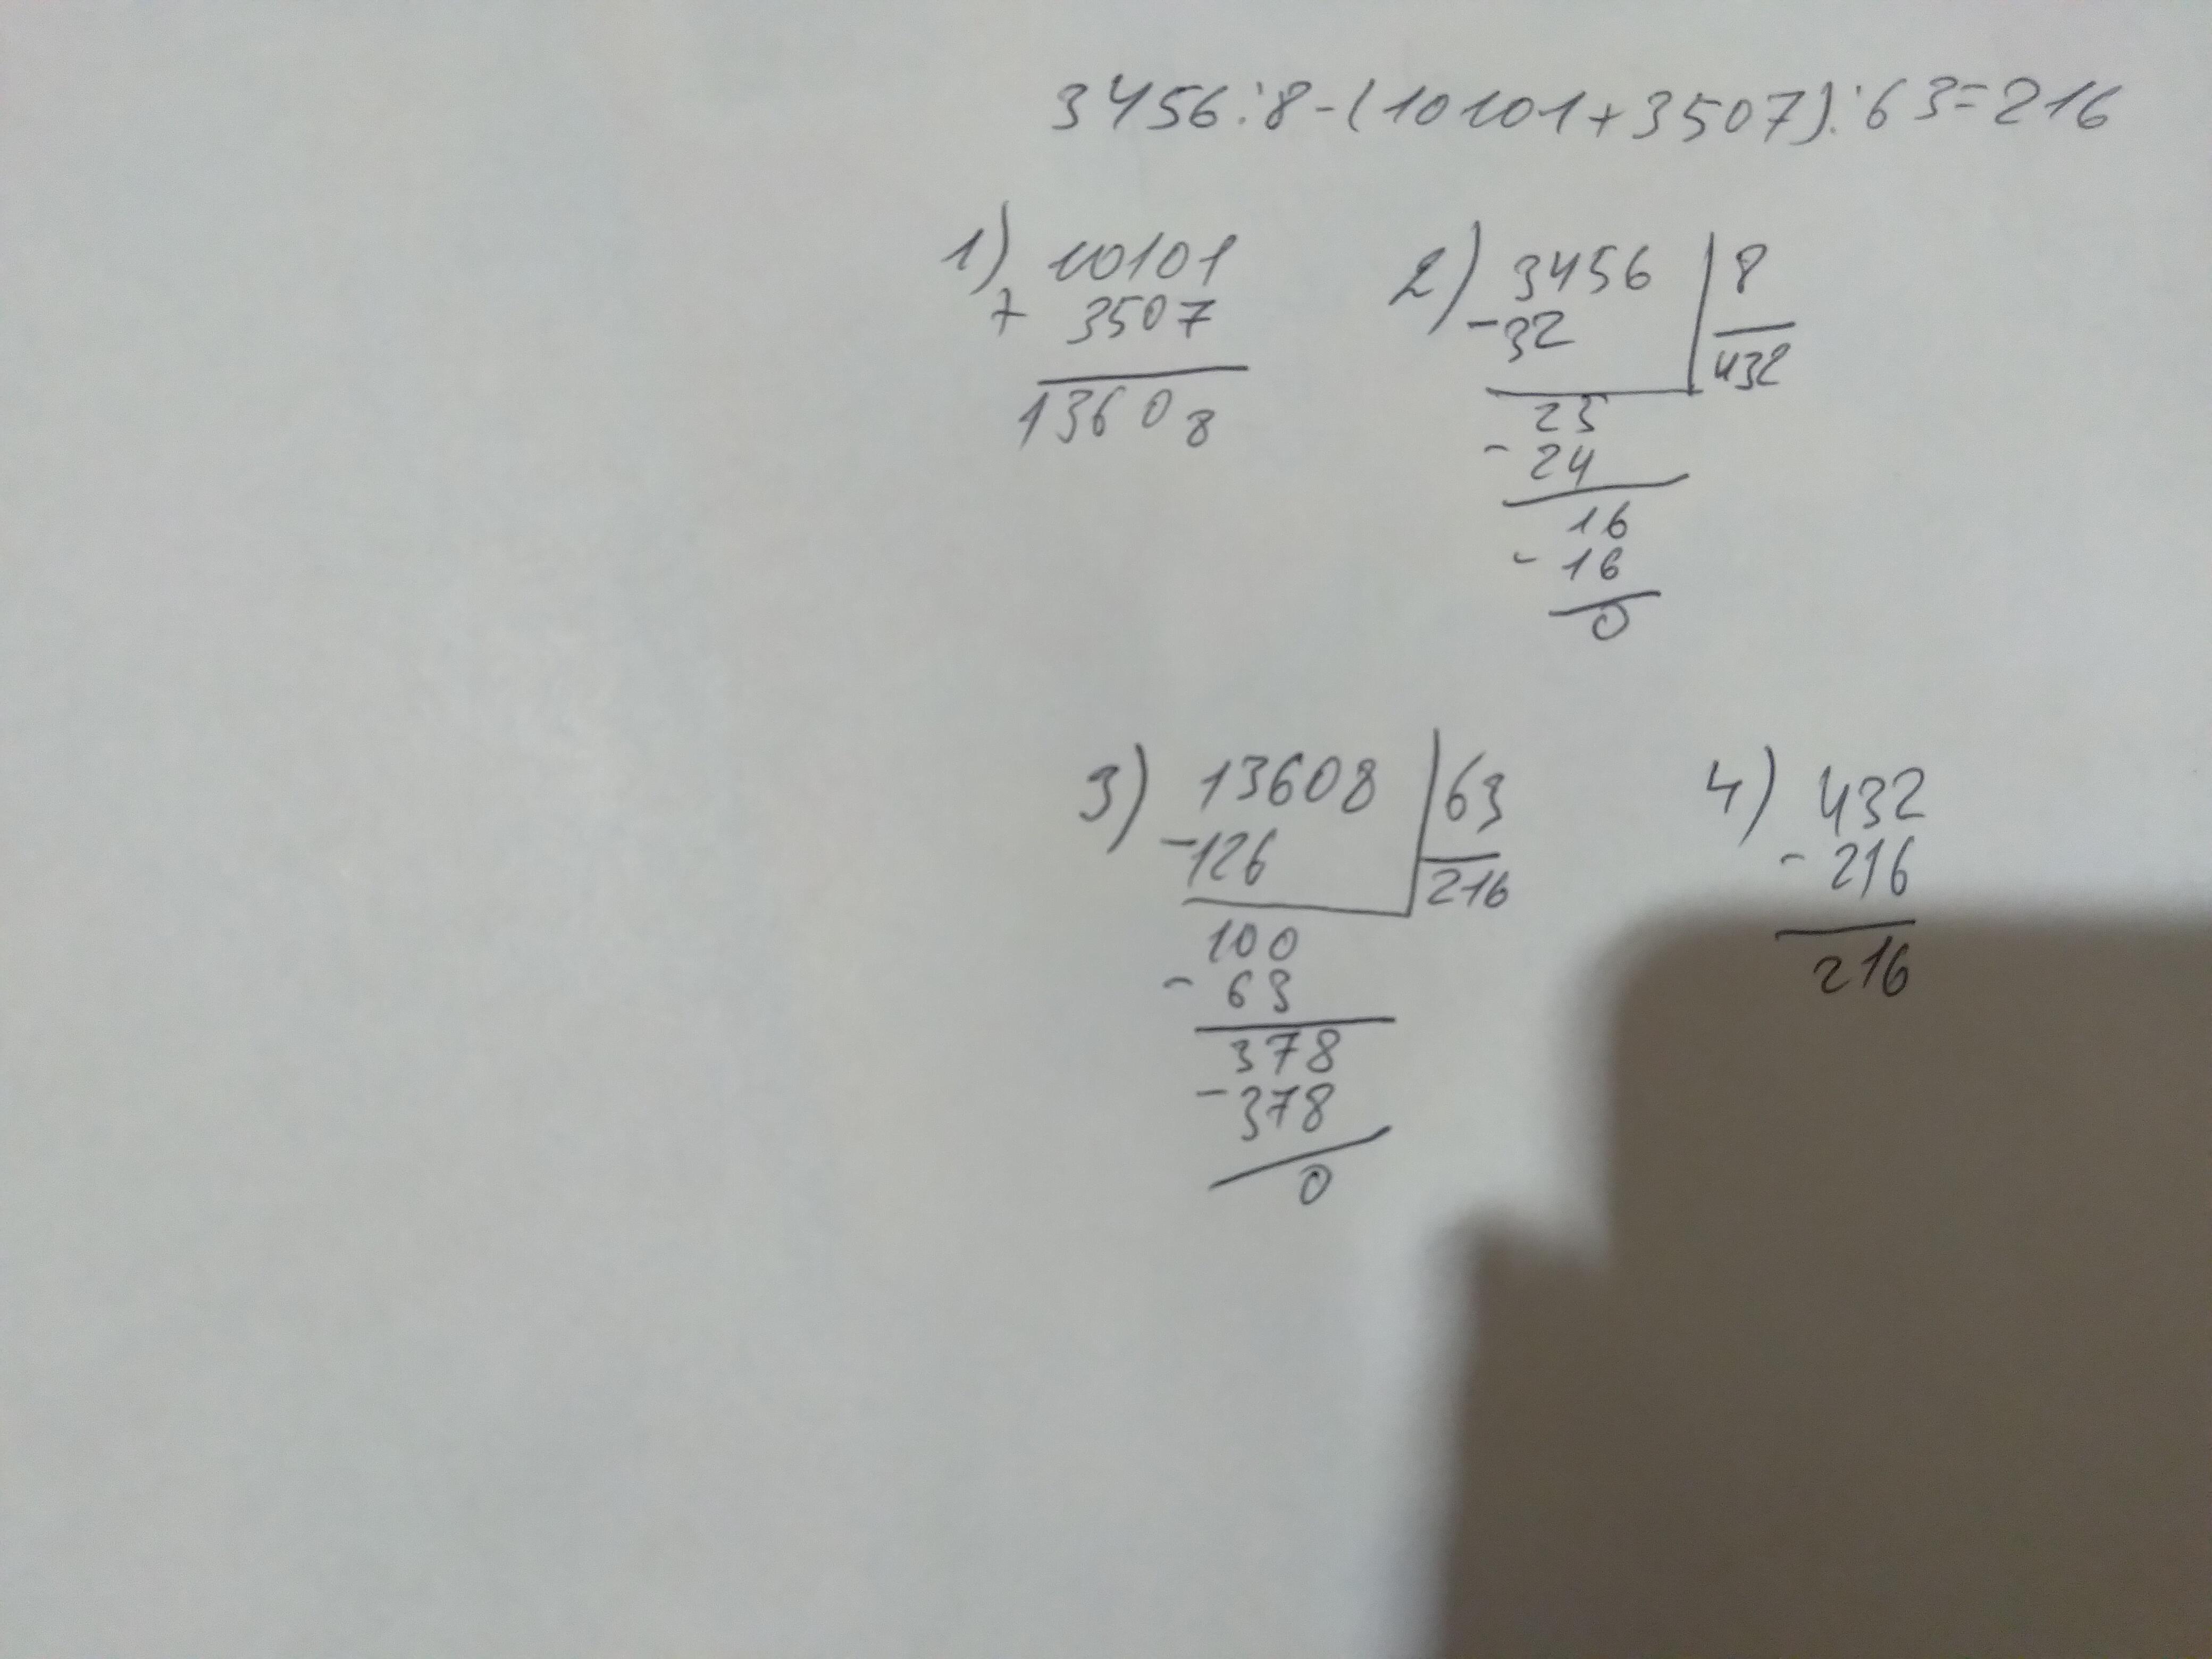 3456:8-(10101+3507):63=216
1) 10101
+ 3507
13608
2) 3456 | 8
-32 432
25
- 24
16
- 16
0
3) 13608 | 63
-126 216
100
- 63
378
-378
0
4) 432
- 216
216